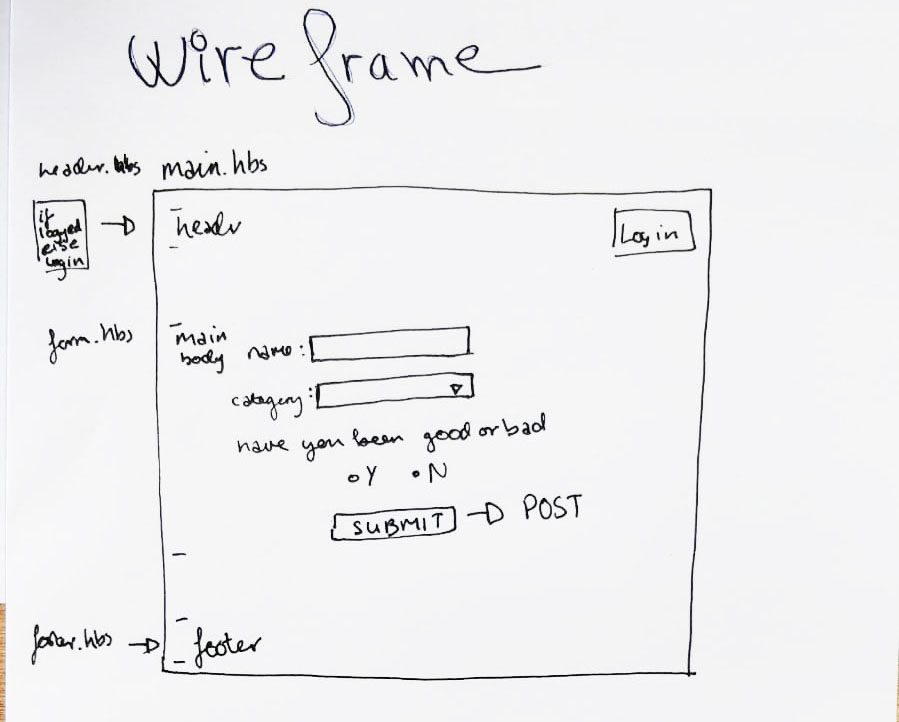 wireframe
header.hbs main.hbs
if
logged
else
login
header
Log in
form.hbs
main
body
name:
category:
have you been good or bad
Y N
SUBMIT
POST
footer.hbs
footer